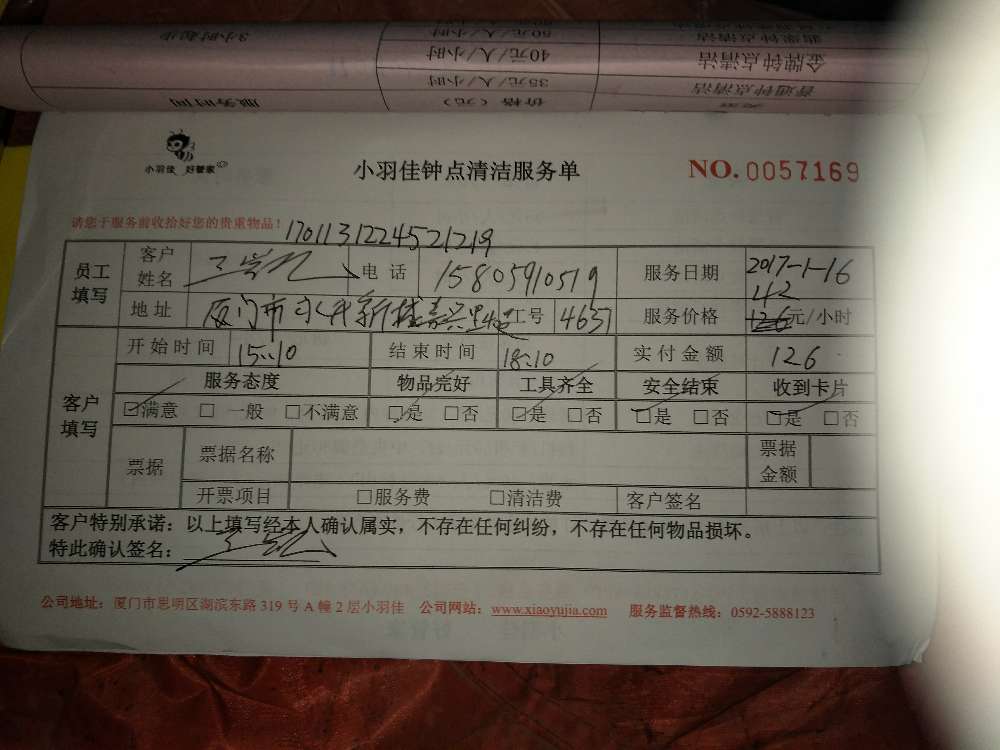 3小时起步 50元/人/小时
40元/人/小时 金牌钟点清洁
35元/人/小时 普通钟点清洁
服务时间 价格（元）
小羽佳 好管家
小羽佳钟点清洁服务单
NO. 0057169
请您于服务前收拾好您的贵重物品！
1701131224521219
员工填写 客户姓名 电话 15805910519 服务日期 2017-1-16
地址 厦门市 工号 4637 服务价格 42 元/小时
客户填写 开始时间 15:10 结束时间 18:10 实付金额 126
服务态度 物品完好 工具齐全 安全结束 收到卡片
☑满意 □一般 □不满意 ☑是 □否 ☑是 □否 ☑是 □否 ☑是 □否
票据 票据名称 票据金额
开票项目 □服务费 □清洁费 客户签名
客户特别承诺：以上填写经本人确认属实，不存在任何纠纷，不存在任何物品损坏。
特此确认签名：
公司地址：厦门市思明区湖滨东路 319 号 A 幢 2 层小羽佳 公司网站：www.xiaoyujia.com 服务监督热线：0592-5888123